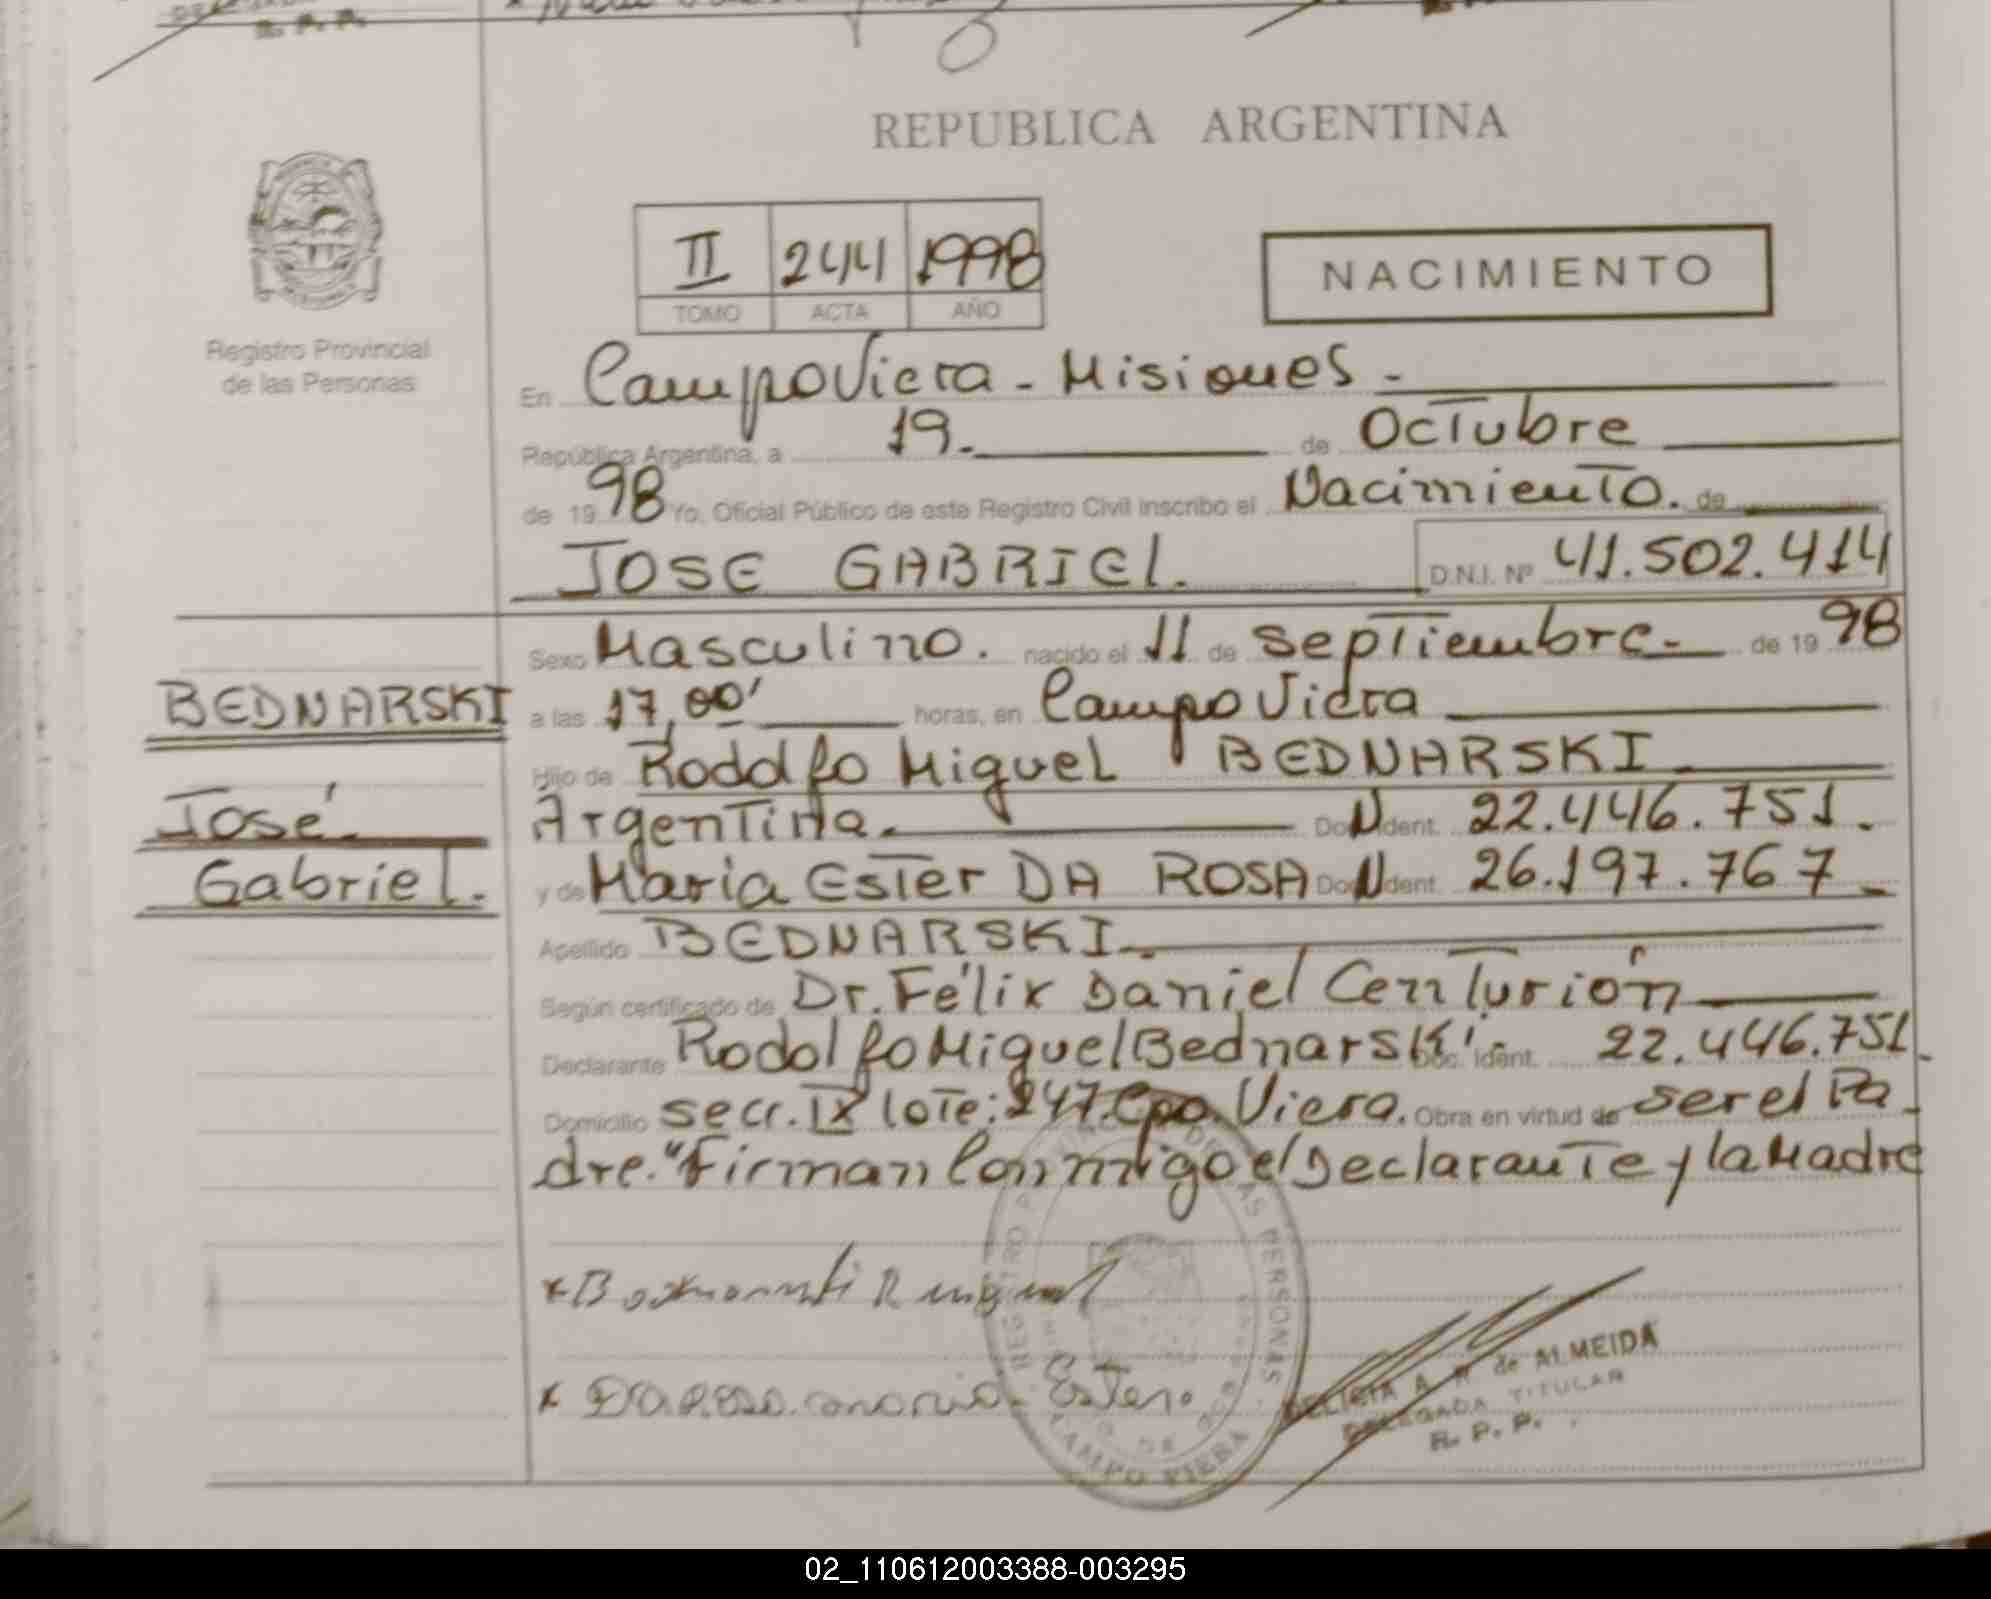 R. P. P.
REPUBLICA ARGENTINA
II 244 1998
TOMO ACTA AÑO
NACIMIENTO
Registro Provincial
de las Personas
En Campo Viera - Misiones -
República Argentina, a 19. de Octubre
de 1998 Yo, Oficial Público de este Registro Civil Inscribo el Nacimiento. de
JOSE GABRIEL. D.N.I. Nº 41.502.414
Sexo Masculino. nacido el 11 de Septiembre - de 1998
BEDNARSKI
a las 17,00' horas, en Campo Viera
Hijo de Rodolfo Miguel BEDNARSKI
José
Argentina. Doc. Ident. N 22.446.751.
Gabriel.
y de Maria Ester DA ROSA Doc. Ident. N 26.197.767 -
Apellido BEDNARSKI -
Según certificado de Dr. Félix Daniel Centurión
Declarante Rodolfo Miguel Bednarski Doc. Ident. 22.446.751.
Domicilio secc. IX lote: 247. Cpo. Viera. Obra en virtud de ser el Pa-
dre. "Firman Conmigo el Declarante y la Madre
REGISTRO DE LAS PERSONAS
CAMPO VIERA
Ester
DELICIA A. R. de ALMEIDA
DELEGADA TITULAR
R. P. P.
02_110612003388-003295